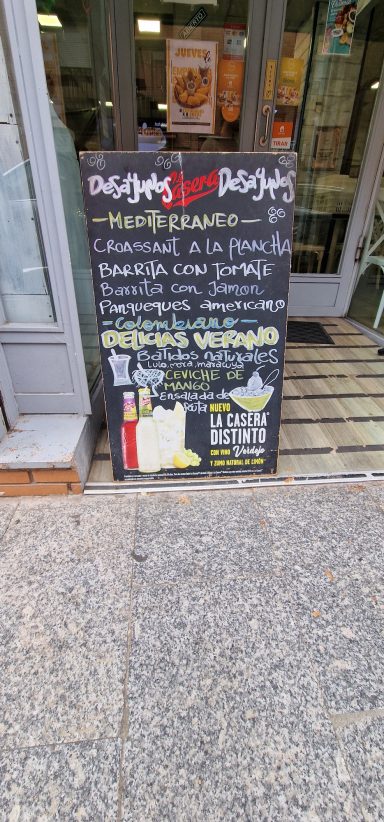 ABIERTO
JUEVES
TIRAR
Desayunos La Casera Desayunos
-MEDITERRANEO-
CROASSANT A LA PLANCHA
BARRITA CON TOMATE
Barrita con Jamon
Panqueques americano
-Colombiano-
DELICIAS VERANO
Batidos naturales
Lulo, mora, maracuya
CEVICHE DE
MANGO
Ensalada de
fruta
NUEVO
LA CASERA
DISTINTO
CON VINO Verdejo
Y ZUMO NATURAL DE LIMÓN